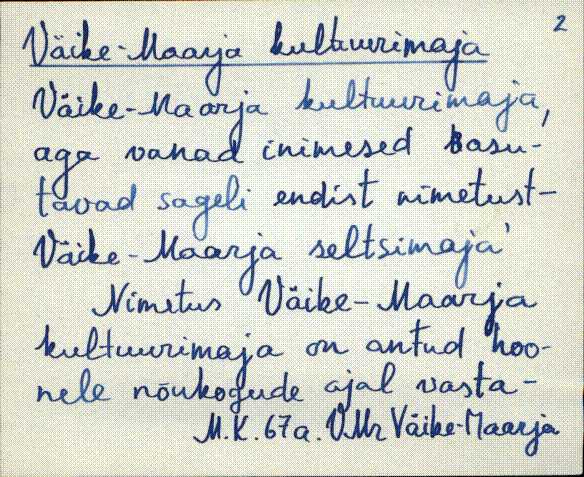 2
Väike-Maarja kultuurimaja
Väike-Maarja kultuurimaja,
aga vanad inimesed kasu-
tavad sageli endist nimetust-
Väike-Maarja seltsimaja'
Nimetus Väike-Maarja
kultuurimaja on antud hoo-
nele nõukogude ajal vasta-
M.K. 67a. VMr Väike-Maarja